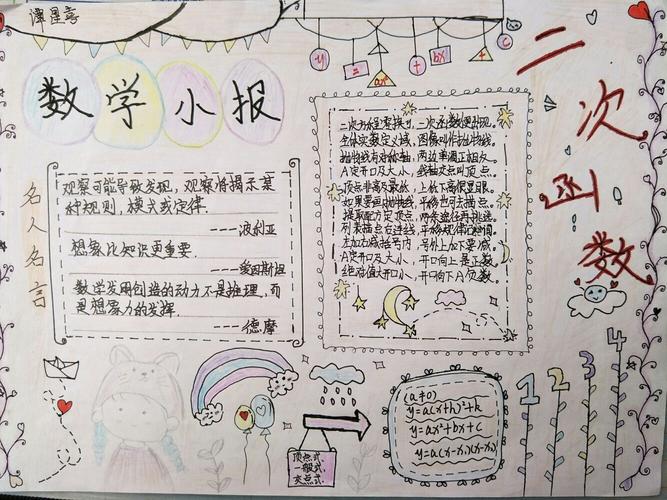 谭星蕊
y = ax² + bx + c
数学小报
二次函数
名人名言
观察可能导致发现,观察将揭示某
种规则,模式或定律.
----波利亚
想象比知识更重要.
----爱因斯坦
数学发明创造的动力不是推理,而
是想象力的发挥
----德摩
二次方程零换y,二次函数便出现。
全体实数定义域,图像叫作抛物线。
抛物线有对称轴,两边单调正相反。
A定开口及大小,线轴交点叫顶点。
顶点非高即最低,上低下高很显眼。
如果要画抛物线,平移也可去描点。
提取配方定顶点,两条途径再挑选。
列表描点后连线,平移规律记心间。
左加右减括号内,号外上加下要减。
A定开口及大小,开口向上是正数。
绝对值大开口小,开口向下A负数。
顶点式
一般式
交点式
(a≠0)
y=a(x+h)²+k
y=ax²+bx+c
y=a(x-x₁)(x-x₂)
1 2 3 4